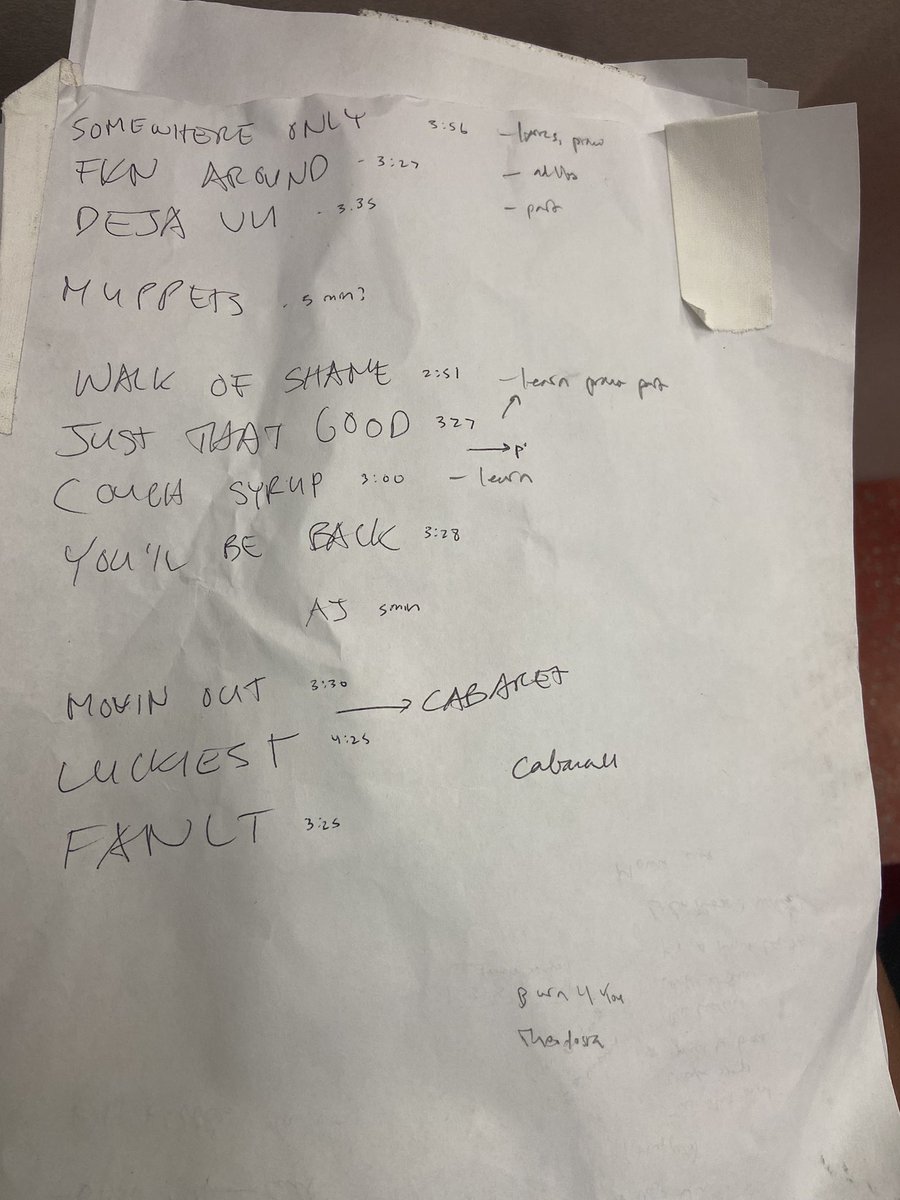 SOMEWHERE ONLY 3:56
FKN AROUND - 3:27
DEJA VU - 3.35 - part
MUPPETS - 5 min?
WALK OF SHAME 2:51 - learn piano part
JUST THAT GOOD 327
COUGH SYRUP 3:00 - learn
YOU'LL BE BACK 3:28
AJ 5min
MOVIN OUT 3:30 → CABARET
LUCKIEST 4:25
FAULT 3:25
Burn 4 You
Theodosia